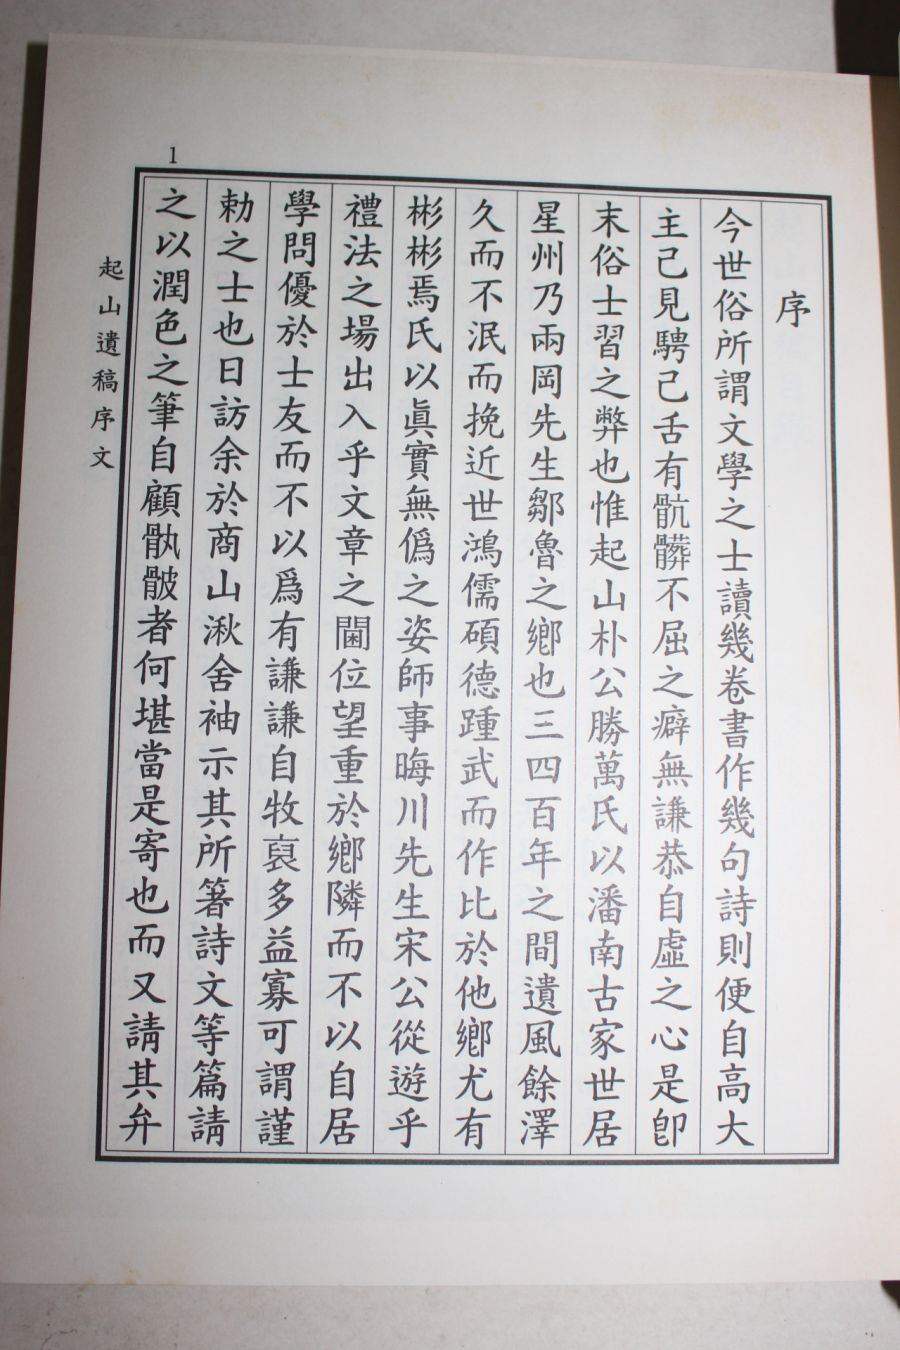 序
今世俗所謂文學之士讀幾卷書作幾句詩則便自高大
主己見騁己舌有骯髒不屈之癖無謙恭自虛之心是卽
末俗士習之弊也惟起山朴公勝萬氏以潘南古家世居
星州乃兩岡先生鄒魯之鄕也三四百年之間遺風餘澤
久而不泯而挽近世鴻儒碩德踵武而作比於他鄕尤有
彬彬焉氏以眞實無僞之姿師事晦川先生宋公從遊乎
禮法之場出入乎文章之閫位望重於鄕隣而不以自居
學問優於士友而不以爲有謙謙自牧裒多益寡可謂謹
勅之士也日訪余於商山湫舍袖示其所箸詩文等篇請
之以潤色之筆自顧骫骳者何堪當是寄也而又請其弁
起山遺稿序文
1